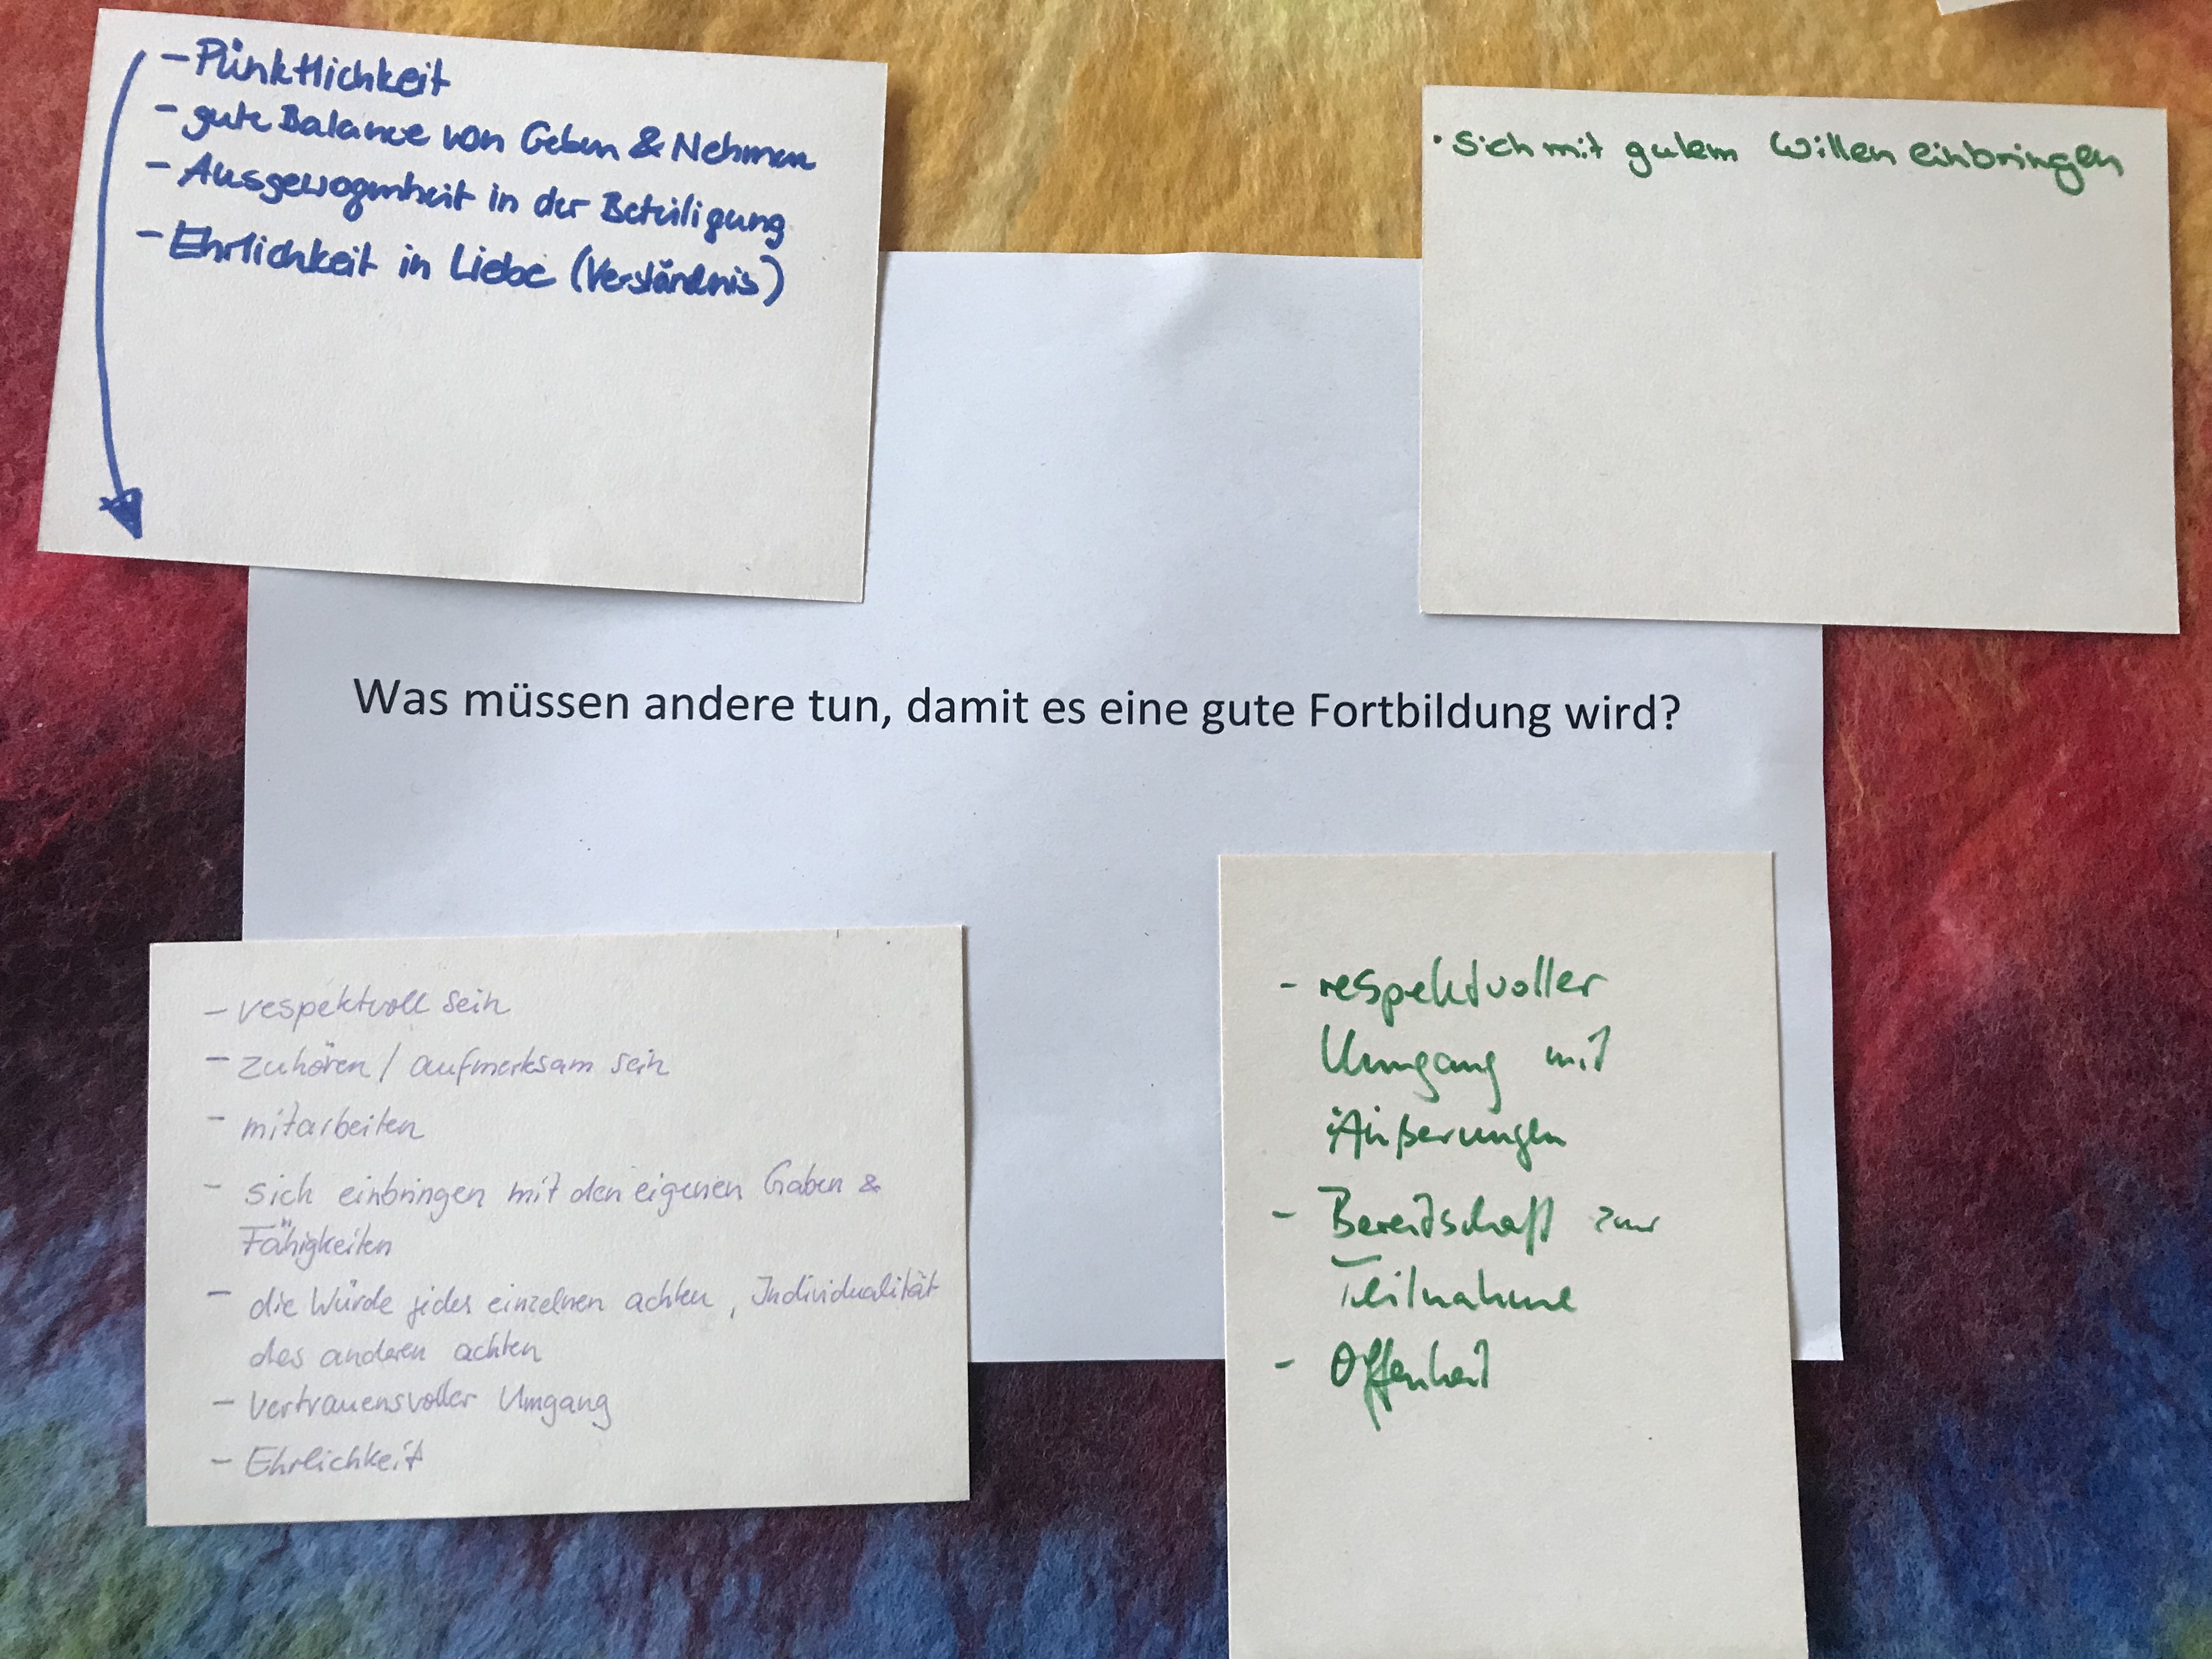 - Pünktlichkeit
- gute Balance von Geben & Nehmen
- Ausgewogenheit in der Beteiligung
- Ehrlichkeit in Liebe (Verständnis)
• Sich mit gutem Willen einbringen
Was müssen andere tun, damit es eine gute Fortbildung wird?
- respektvoll sein
- zuhören / aufmerksam sein
- mitarbeiten
- sich einbringen mit den eigenen Gaben &
Fähigkeiten
- die Würde jedes einzelnen achten, Individualität
des anderen achten
- vertrauensvoller Umgang
- Ehrlichkeit
- respektvoller
Umgang mit
Äußerungen
- Bereitschaft zur
Teilnahme
- Offenheit